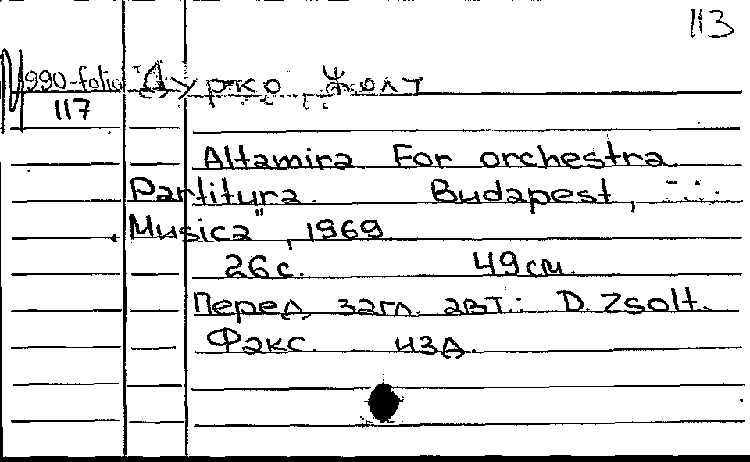 113
990-folio Дурко, Жолт
117
Altamira For orchestra.
Partitura. Budapest,
Musica", 1969
26 с. 49 см.
Перед загл. авт.: D. Zsolt.
Факс. изд.